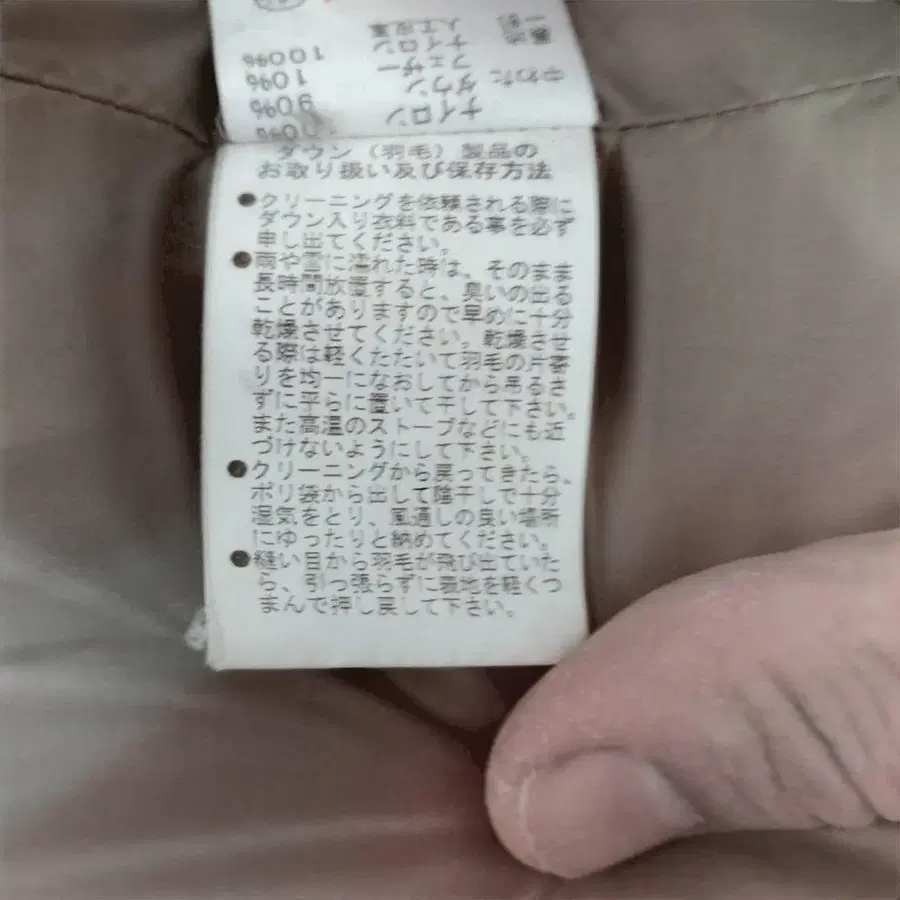 裏地
一部
ナイロン
人工皮革
100%
中わた
ダウン
フェザー
90%
10%
ナイロン
ダウン(羽毛)製品の
お取り扱い及び保存方法
●クリーニングを依頼される際に
ダウン入り衣料である事を必ず
申し出てください。
●雨や雪に濡れた時は、そのまま
長時間放置すると、臭いの出る
ことがありますので早めに十分
乾燥させてください。乾燥させ
る際は軽くたたいて羽毛の片寄
りを均一になおしてから吊るさ
ずに平らに置いて干して下さい。
また高温のストーブなどにも近
づけないようにして下さい。
●クリーニングから戻ってきたら、
ポリ袋から出して陰干しで十分
湿気をとり、風通しの良い場所
にゆったりと納めてください。
●縫い目から羽毛が飛び出ていた
ら、引っ張らずに表地を軽くつ
まんで押し戻して下さい。